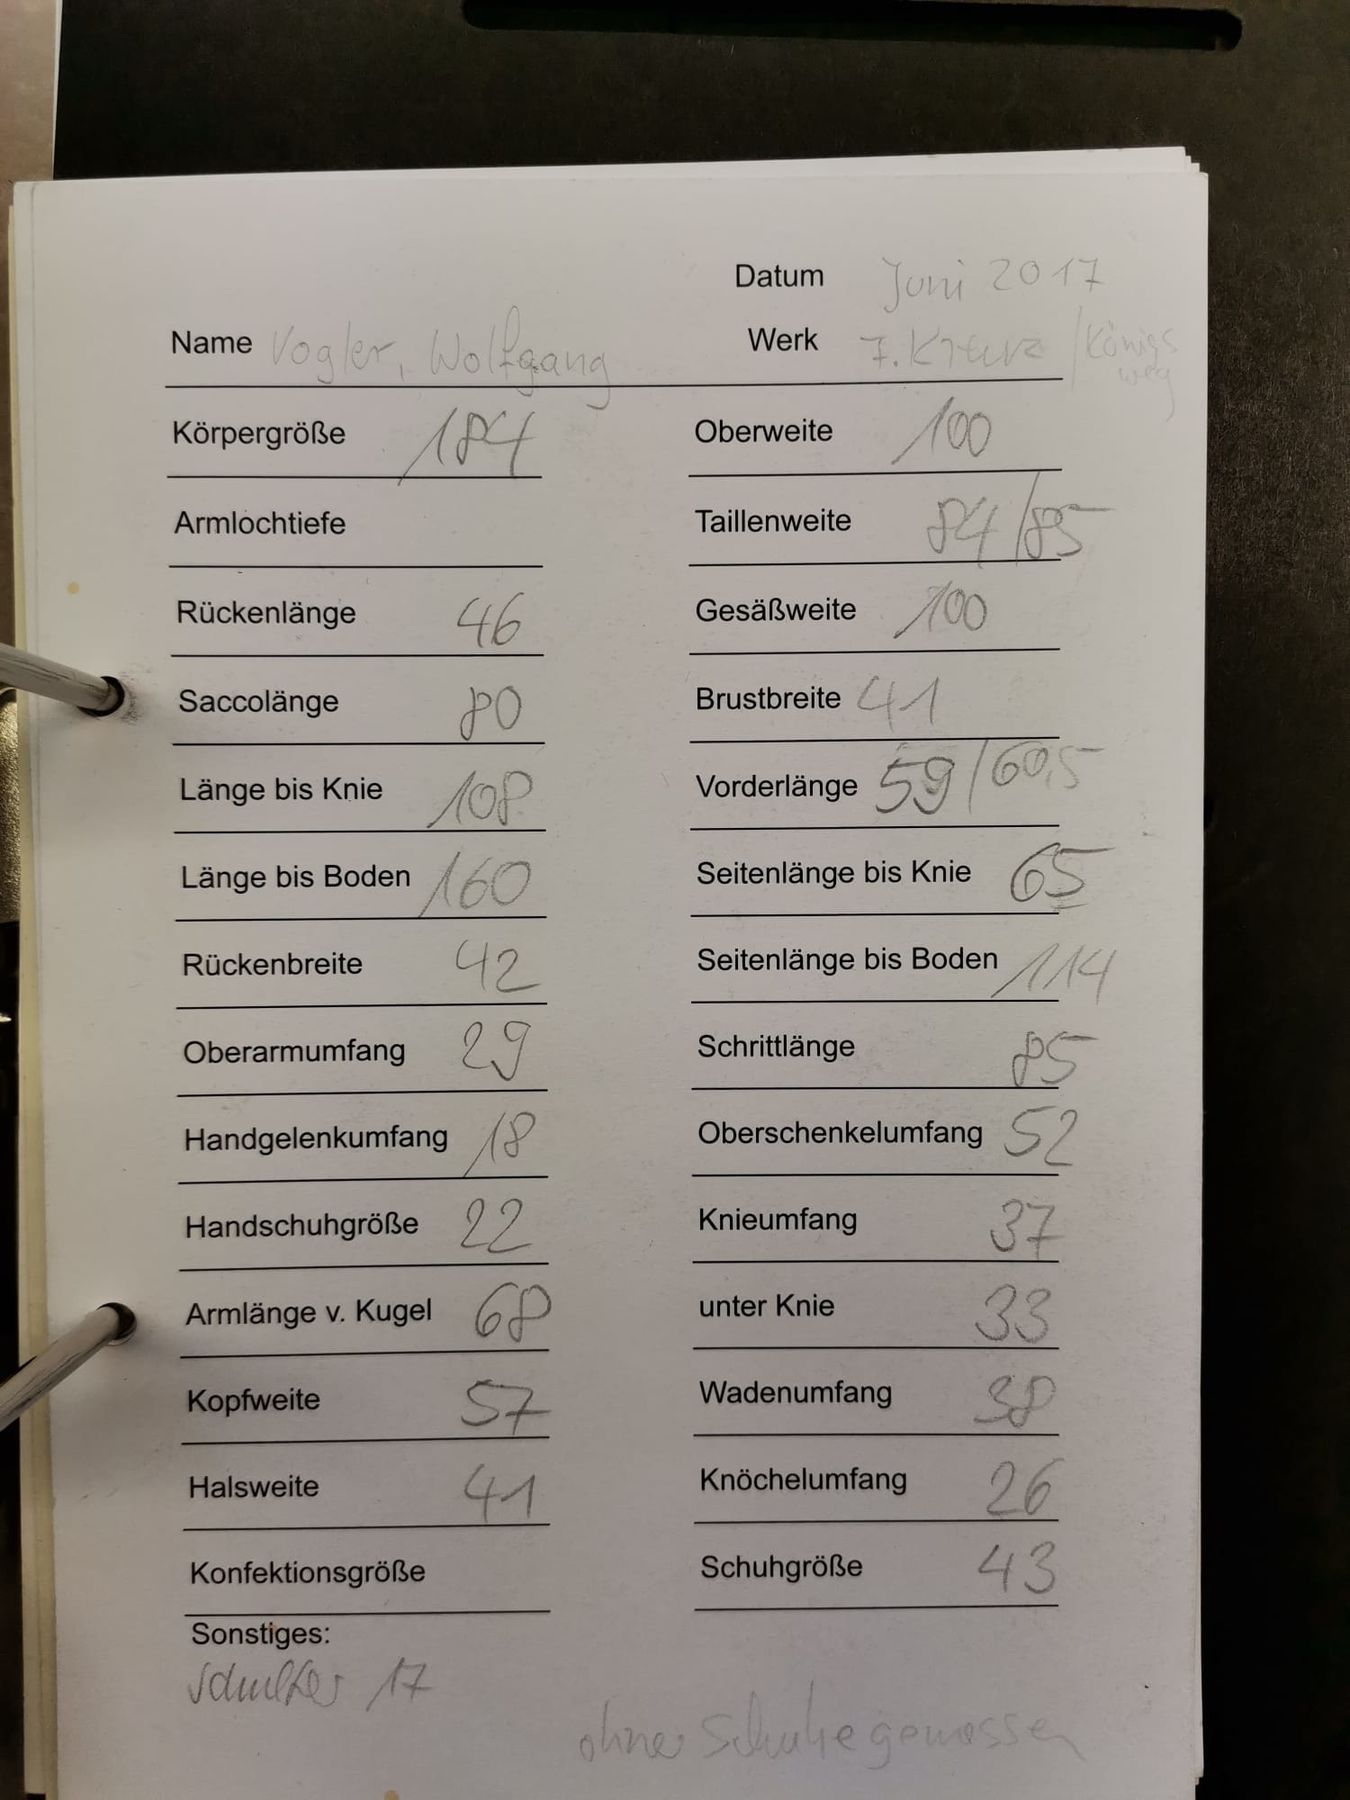 Datum Juni 2017
Name Vogler, Wolfgang Werk 7. Kreuz / Königs
weg
Körpergröße 184 Oberweite 100
Armlochtiefe Taillenweite 84/85
Rückenlänge 46 Gesäßweite 100
Saccolänge 80 Brustbreite 41
Länge bis Knie 108 Vorderlänge 59/60,5
Länge bis Boden 160 Seitenlänge bis Knie 65
Rückenbreite 42 Seitenlänge bis Boden 114
Oberarmumfang 29 Schrittlänge 85
Handgelenkumfang 18 Oberschenkelumfang 52
Handschuhgröße 22 Knieumfang 37
Armlänge v. Kugel 68 unter Knie 33
Kopfweite 57 Wadenumfang 38
Halsweite 41 Knöchelumfang 26
Konfektionsgröße Schuhgröße 43
Sonstiges:
Schulter 17
ohne Schuhe gemessen